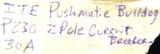 ITE Pushmatic Bulldog
P230 2 Pole Current
Breaker
30A